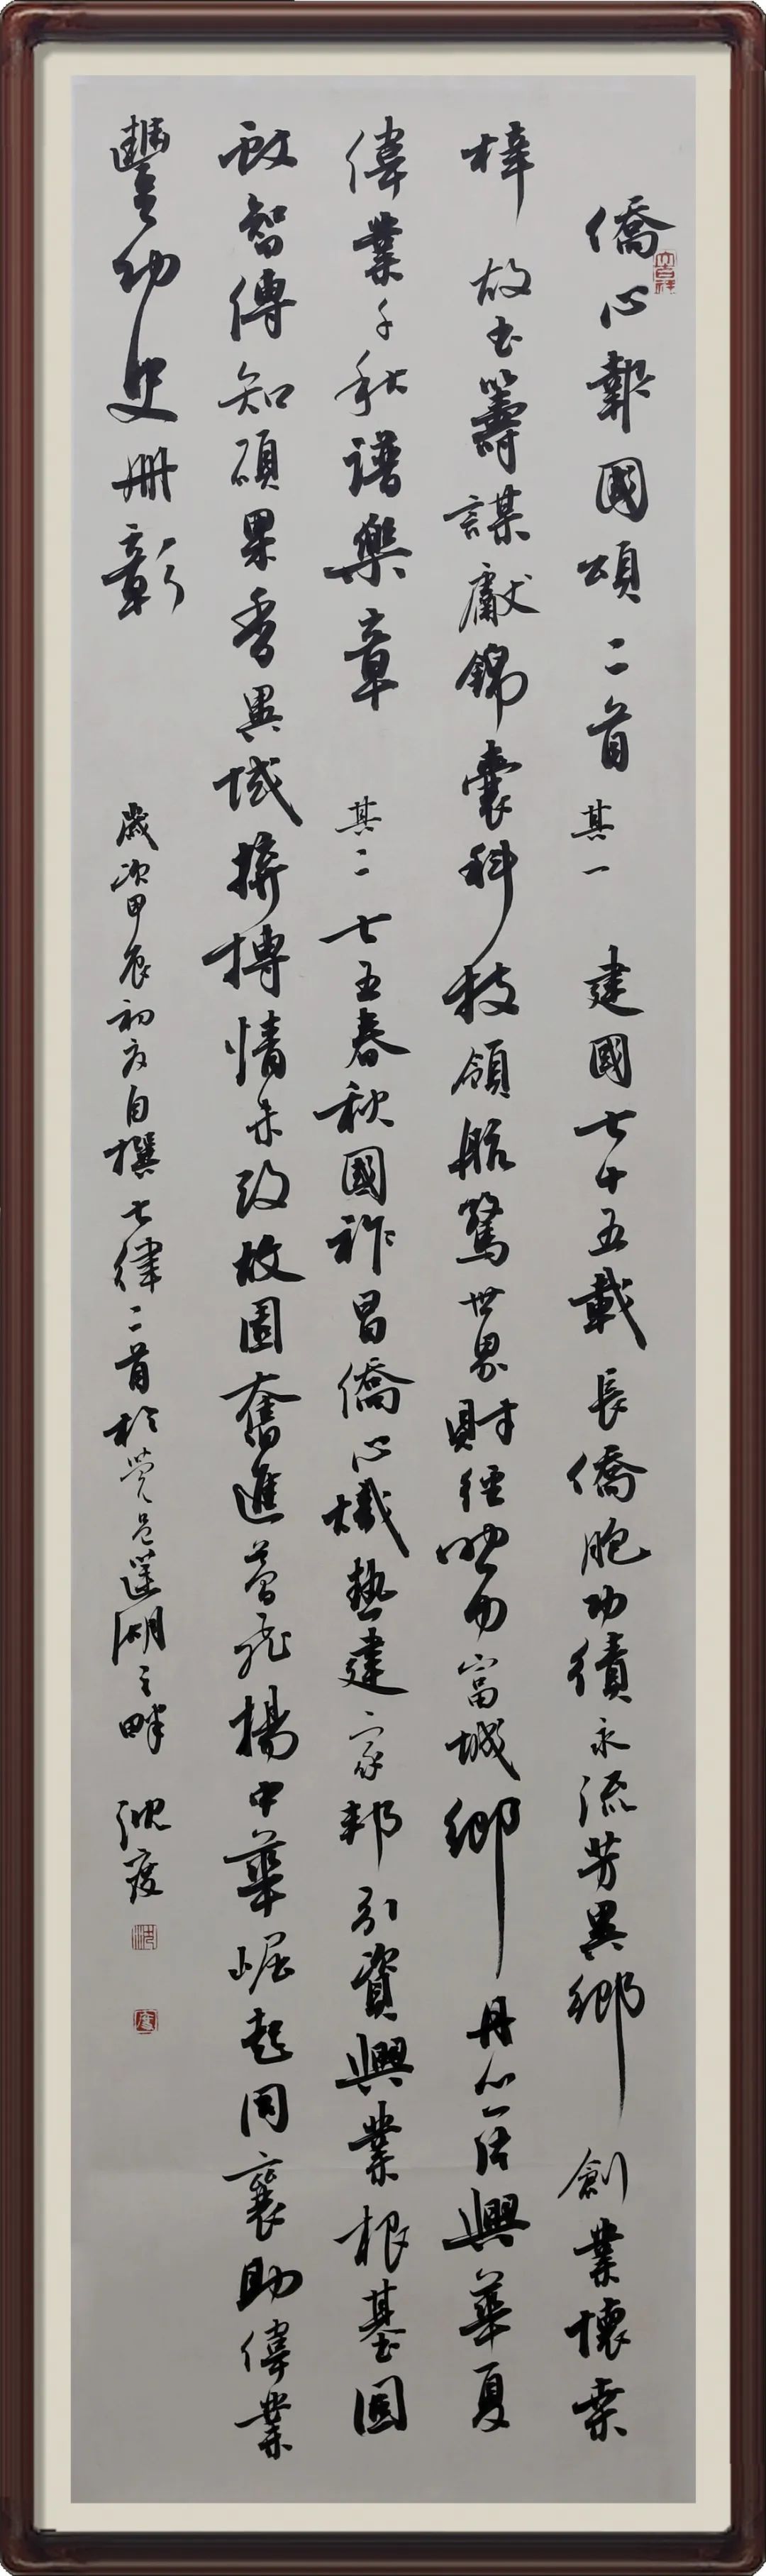 僑心報國頌二首 其一 建國七十五載長僑胞功績永流芳異鄉創業懷桑
梓故土籌謀獻錦囊科技領航驚世界財經力富城鄉丹心興華夏
偉業千秋譜樂章 其二 七五春秋國祚昌僑心熾熱建家邦引資興業根基固
啟智傳知碩果香異域拼搏情未改故園奮進夢飛揚中華崛起同襄助偉業
豐功史冊彰 歲次甲辰初夏自撰七律二首於莞邑蓮湖之畔 沈度
大吉祥
沈
度